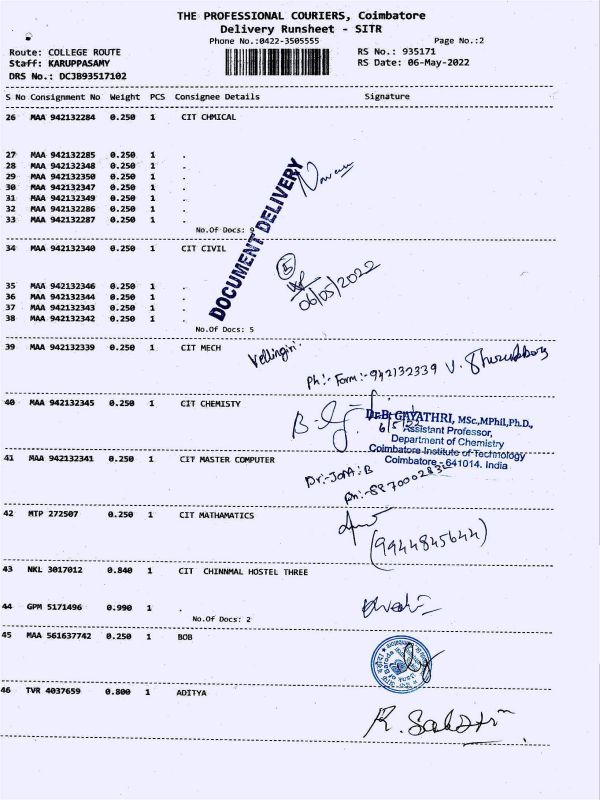 THE PROFESSIONAL COURIERS, Coimbatore
Delivery Runsheet - SITR
Phone No.:0422-3505555
Page No.:2
Route: COLLEGE ROUTE
RS No.: 935171
Staff: KARUPPASAMY
RS Date: 06-May-2022
DRS No.: DCJB93517102
S No Consignment No Weight PCS Consignee Details Signature
26 MAA 942132284 0.250 1 CIT CHMICAL
27 MAA 942132285 0.250 1 .
28 MAA 942132348 0.250 1 .
29 MAA 942132350 0.250 1 .
30 MAA 942132347 0.250 1 .
31 MAA 942132349 0.250 1 .
32 MAA 942132286 0.250 1 .
33 MAA 942132287 0.250 1 .
No.Of Docs: 9
DOCUMENT DELIVERY
34 MAA 942132340 0.250 1 CIT CIVIL
5
06/05/2022
35 MAA 942132346 0.250 1 .
36 MAA 942132344 0.250 1 .
37 MAA 942132343 0.250 1 .
38 MAA 942132342 0.250 1 .
No.Of Docs: 5
39 MAA 942132339 0.250 1 CIT MECH
Vellingiri
Ph:- Form:- 942132339 V.
40 MAA 942132345 0.250 1 CIT CHEMISTY
Dr.B. GAYATHRI, MSc.,MPhil,Ph.D.,
6/5/22
Assistant Professor,
Department of Chemistry
Coimbatore Institute of Technology
Coimbatore - 641014. India
41 MAA 942132341 0.250 1 CIT MASTER COMPUTER
42 MTP 272507 0.250 1 CIT MATHAMATICS
(9944845644)
43 NKL 3017012 0.840 1 CIT CHINNMAL HOSTEL THREE
44 GPM 5171496 0.990 1 .
No.Of Docs: 2
45 MAA 561637742 0.250 1 BOB
46 TVR 4037659 0.800 1 ADITYA